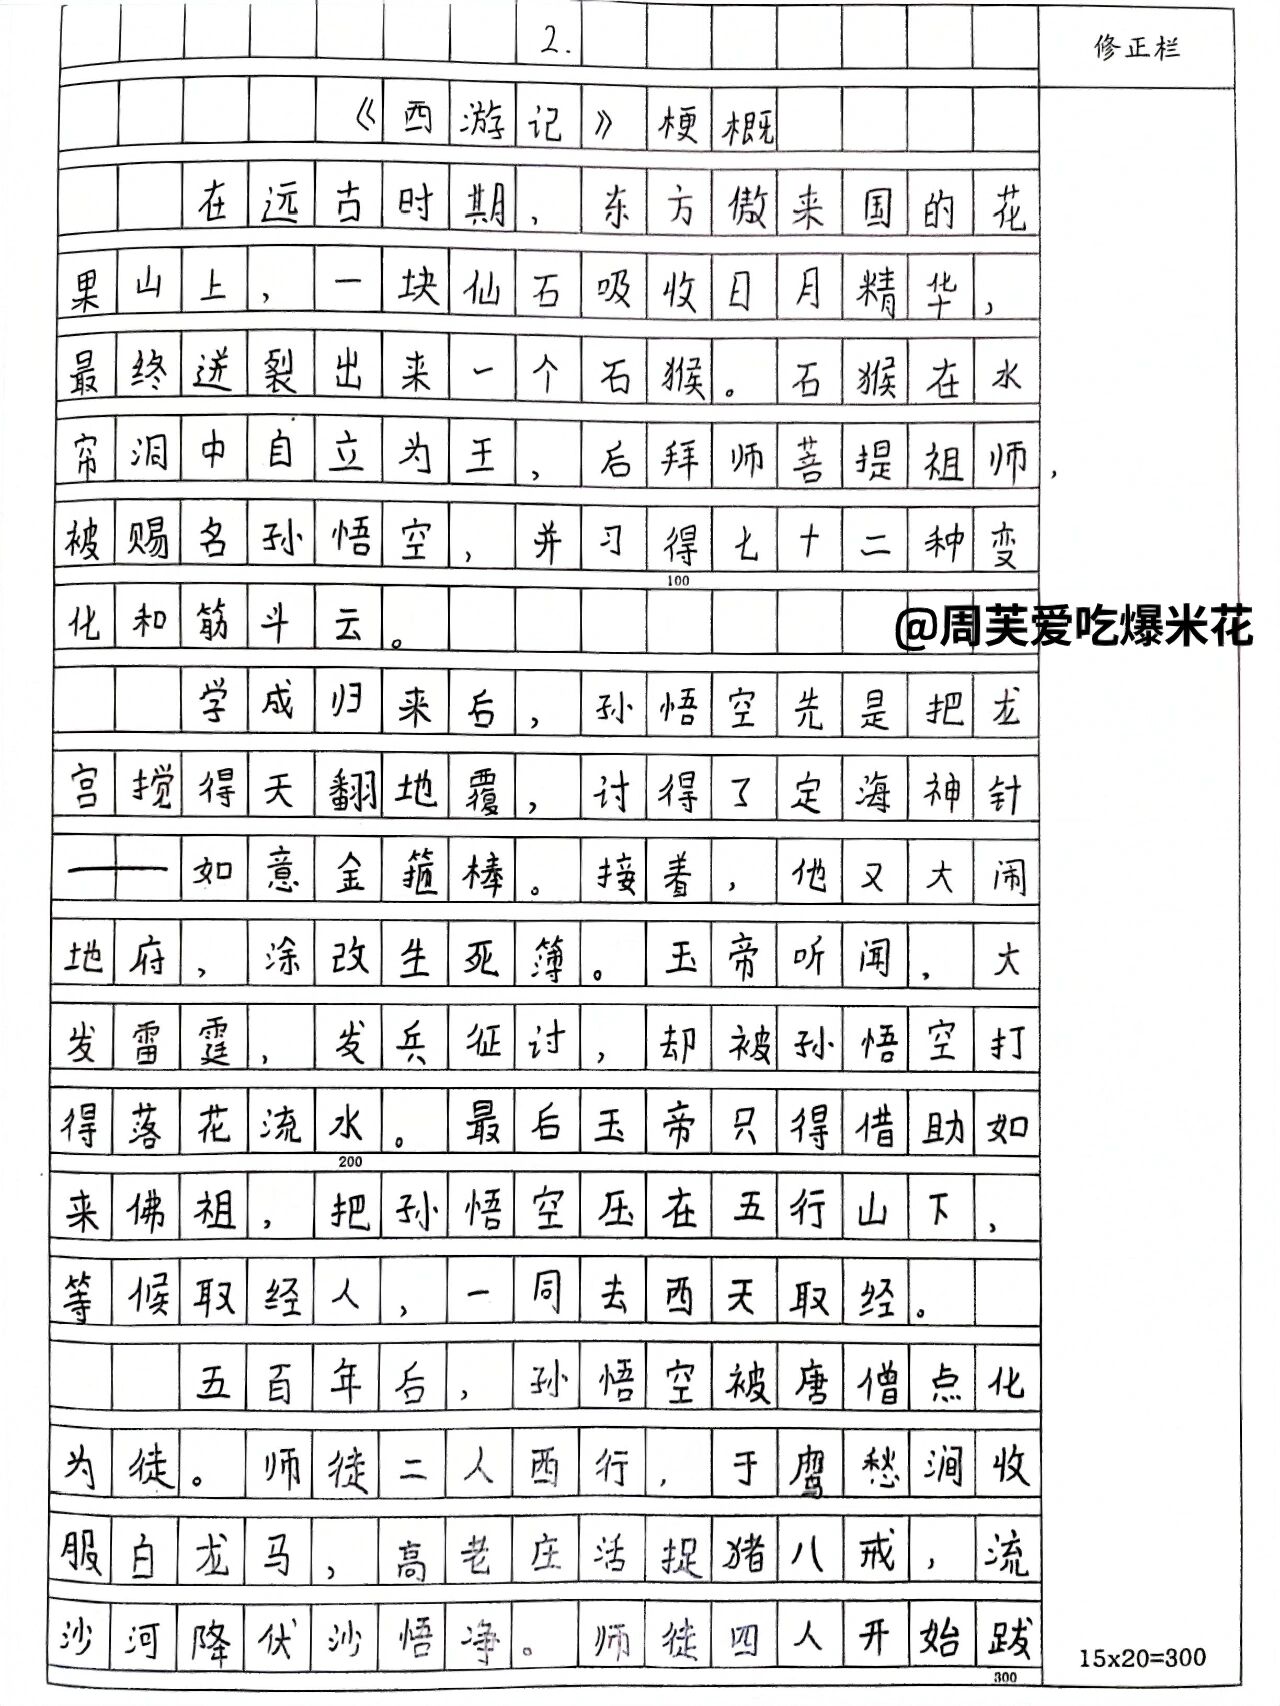 2.
修正栏
《西游记》梗概
在远古时期，东方傲来国的花
果山上，一块仙石吸收日月精华，
最终迸裂出来一个石猴。石猴在水
帘洞中自立为王，后拜师菩提祖师，
被赐名孙悟空，并习得七十二种变
100
化和筋斗云。
@周芙爱吃爆米花
学成归来后，孙悟空先是把龙
宫搅得天翻地覆，讨得了定海神针
——如意金箍棒。接着，他又大闹
地府，涂改生死簿。玉帝听闻，大
发雷霆，发兵征讨，却被孙悟空打
得落花流水。最后玉帝只得借助如
200
来佛祖，把孙悟空压在五行山下，
等候取经人，一同去西天取经。
五百年后，孙悟空被唐僧点化
为徒。师徒二人西行，于鹰愁涧收
服白龙马，高老庄活捉猪八戒，流
沙河降伏沙悟净。师徒四人开始跋
300
15x20=300